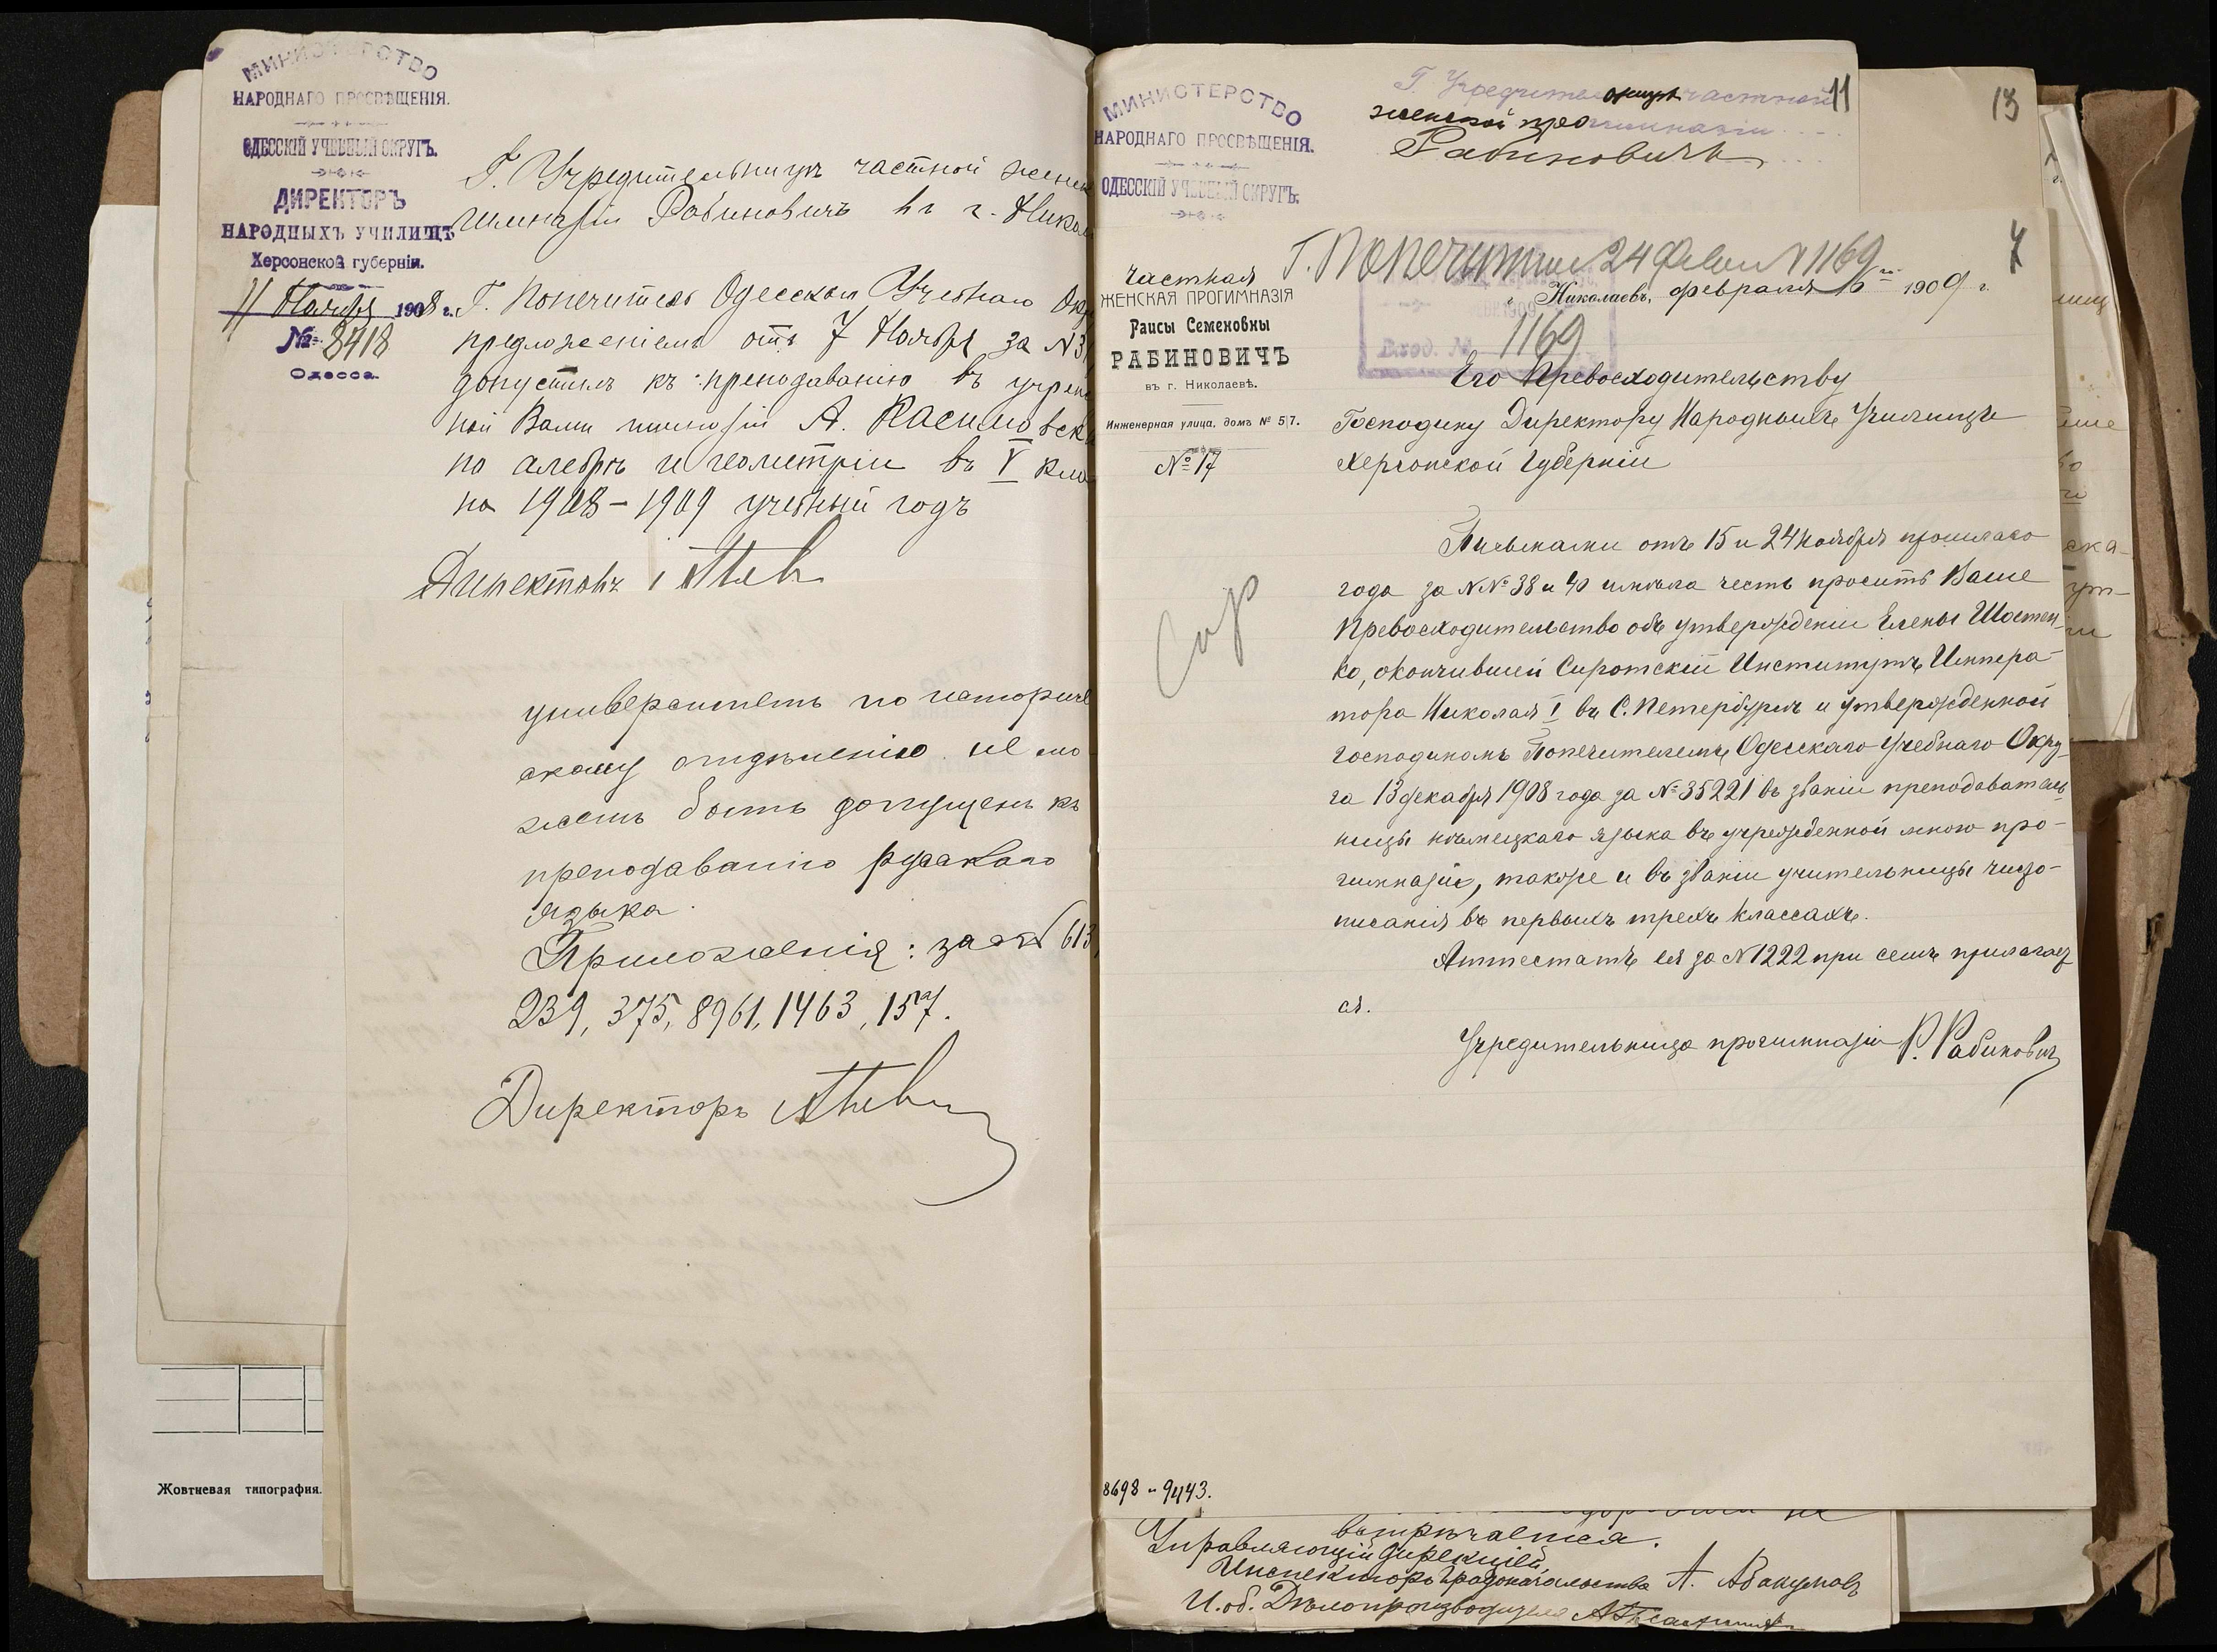 МИНИСТЕРСТВО
НАРОДНАГО ПРОСВѢЩЕНІЯ.
ОДЕССКІЙ УЧЕБНЫЙ ОКРУГЪ.
ДИРЕКТОРЪ
НАРОДНЫХЪ УЧИЛИЩЪ
Херсонской губерніи.
11 Ноября 1908 г.
№ 8418
Одесса
Г. Учредительницѣ частной женск
гимназіи Рабиновичъ въ г. Никол
Г. Попечитель Одесскаго Учебнаго Окр
предложеніемъ отъ 7 Ноября за №
допустилъ къ преподаванію въ учрежд
ной Вами гимназіи А.
по алгебрѣ и геометріи въ V кла
на 1908–1909 учебный годъ
Директоръ
университетъ по историче
скому отдѣленію не мо
жетъ быть допущенъ къ
преподаванію русскаго
языка.
Приложенія: за №№ 613,
239, 375, 8961, 1463, 157.
Директоръ
МИНИСТЕРСТВО
НАРОДНАГО ПРОСВѢЩЕНІЯ.
ОДЕССКІЙ УЧЕБНЫЙ ОКРУГЪ.
Г. Учредительницѣ частной
женской прогимназіи
Рабиновичъ
11
13
7
Г. Попечителю 24 Февр № 1169
Частная
ЖЕНСКАЯ ПРОГИМНАЗІЯ
Раисы Семеновны
РАБИНОВИЧЪ
въ г. Николаевѣ.
Инженерная улица, домъ № 5|7.
№ 17
г. Николаевъ, февраля 16 1909 г.
Вход. № 1169
Его Превосходительству
Господину Директору Народныхъ Училищъ
Херсонской Губерніи
Письмами отъ 15 и 24 ноября прошлаго
года за №№ 38 и 40 имѣла честь просить Ваше
Превосходительство объ утвержденіи Елены Шостен-
ко, окончившей Сиротскій Институтъ Импера-
тора Николая I въ С. Петербургѣ и утвержденной
Господиномъ Попечителемъ Одесскаго Учебнаго Окру-
га 13 декабря 1908 года за № 35221 въ званіи преподаватель-
ницы нѣмецкаго языка въ учрежденной мною про-
гимназіи, также и въ званіи учительницы чисто-
писанія въ первыхъ трехъ классахъ.
Аттестатъ ея за № 1222 при семъ прилагает-
ся.
Учредительница прогимназіи Р. Рабиновичъ
8698 и 9443.
встрѣчается.
Управляющій дирекціей,
Инспекторъ градоначальства А. Абакумовъ
И. об. Дѣлопроизводителя
Жовтневая типография.